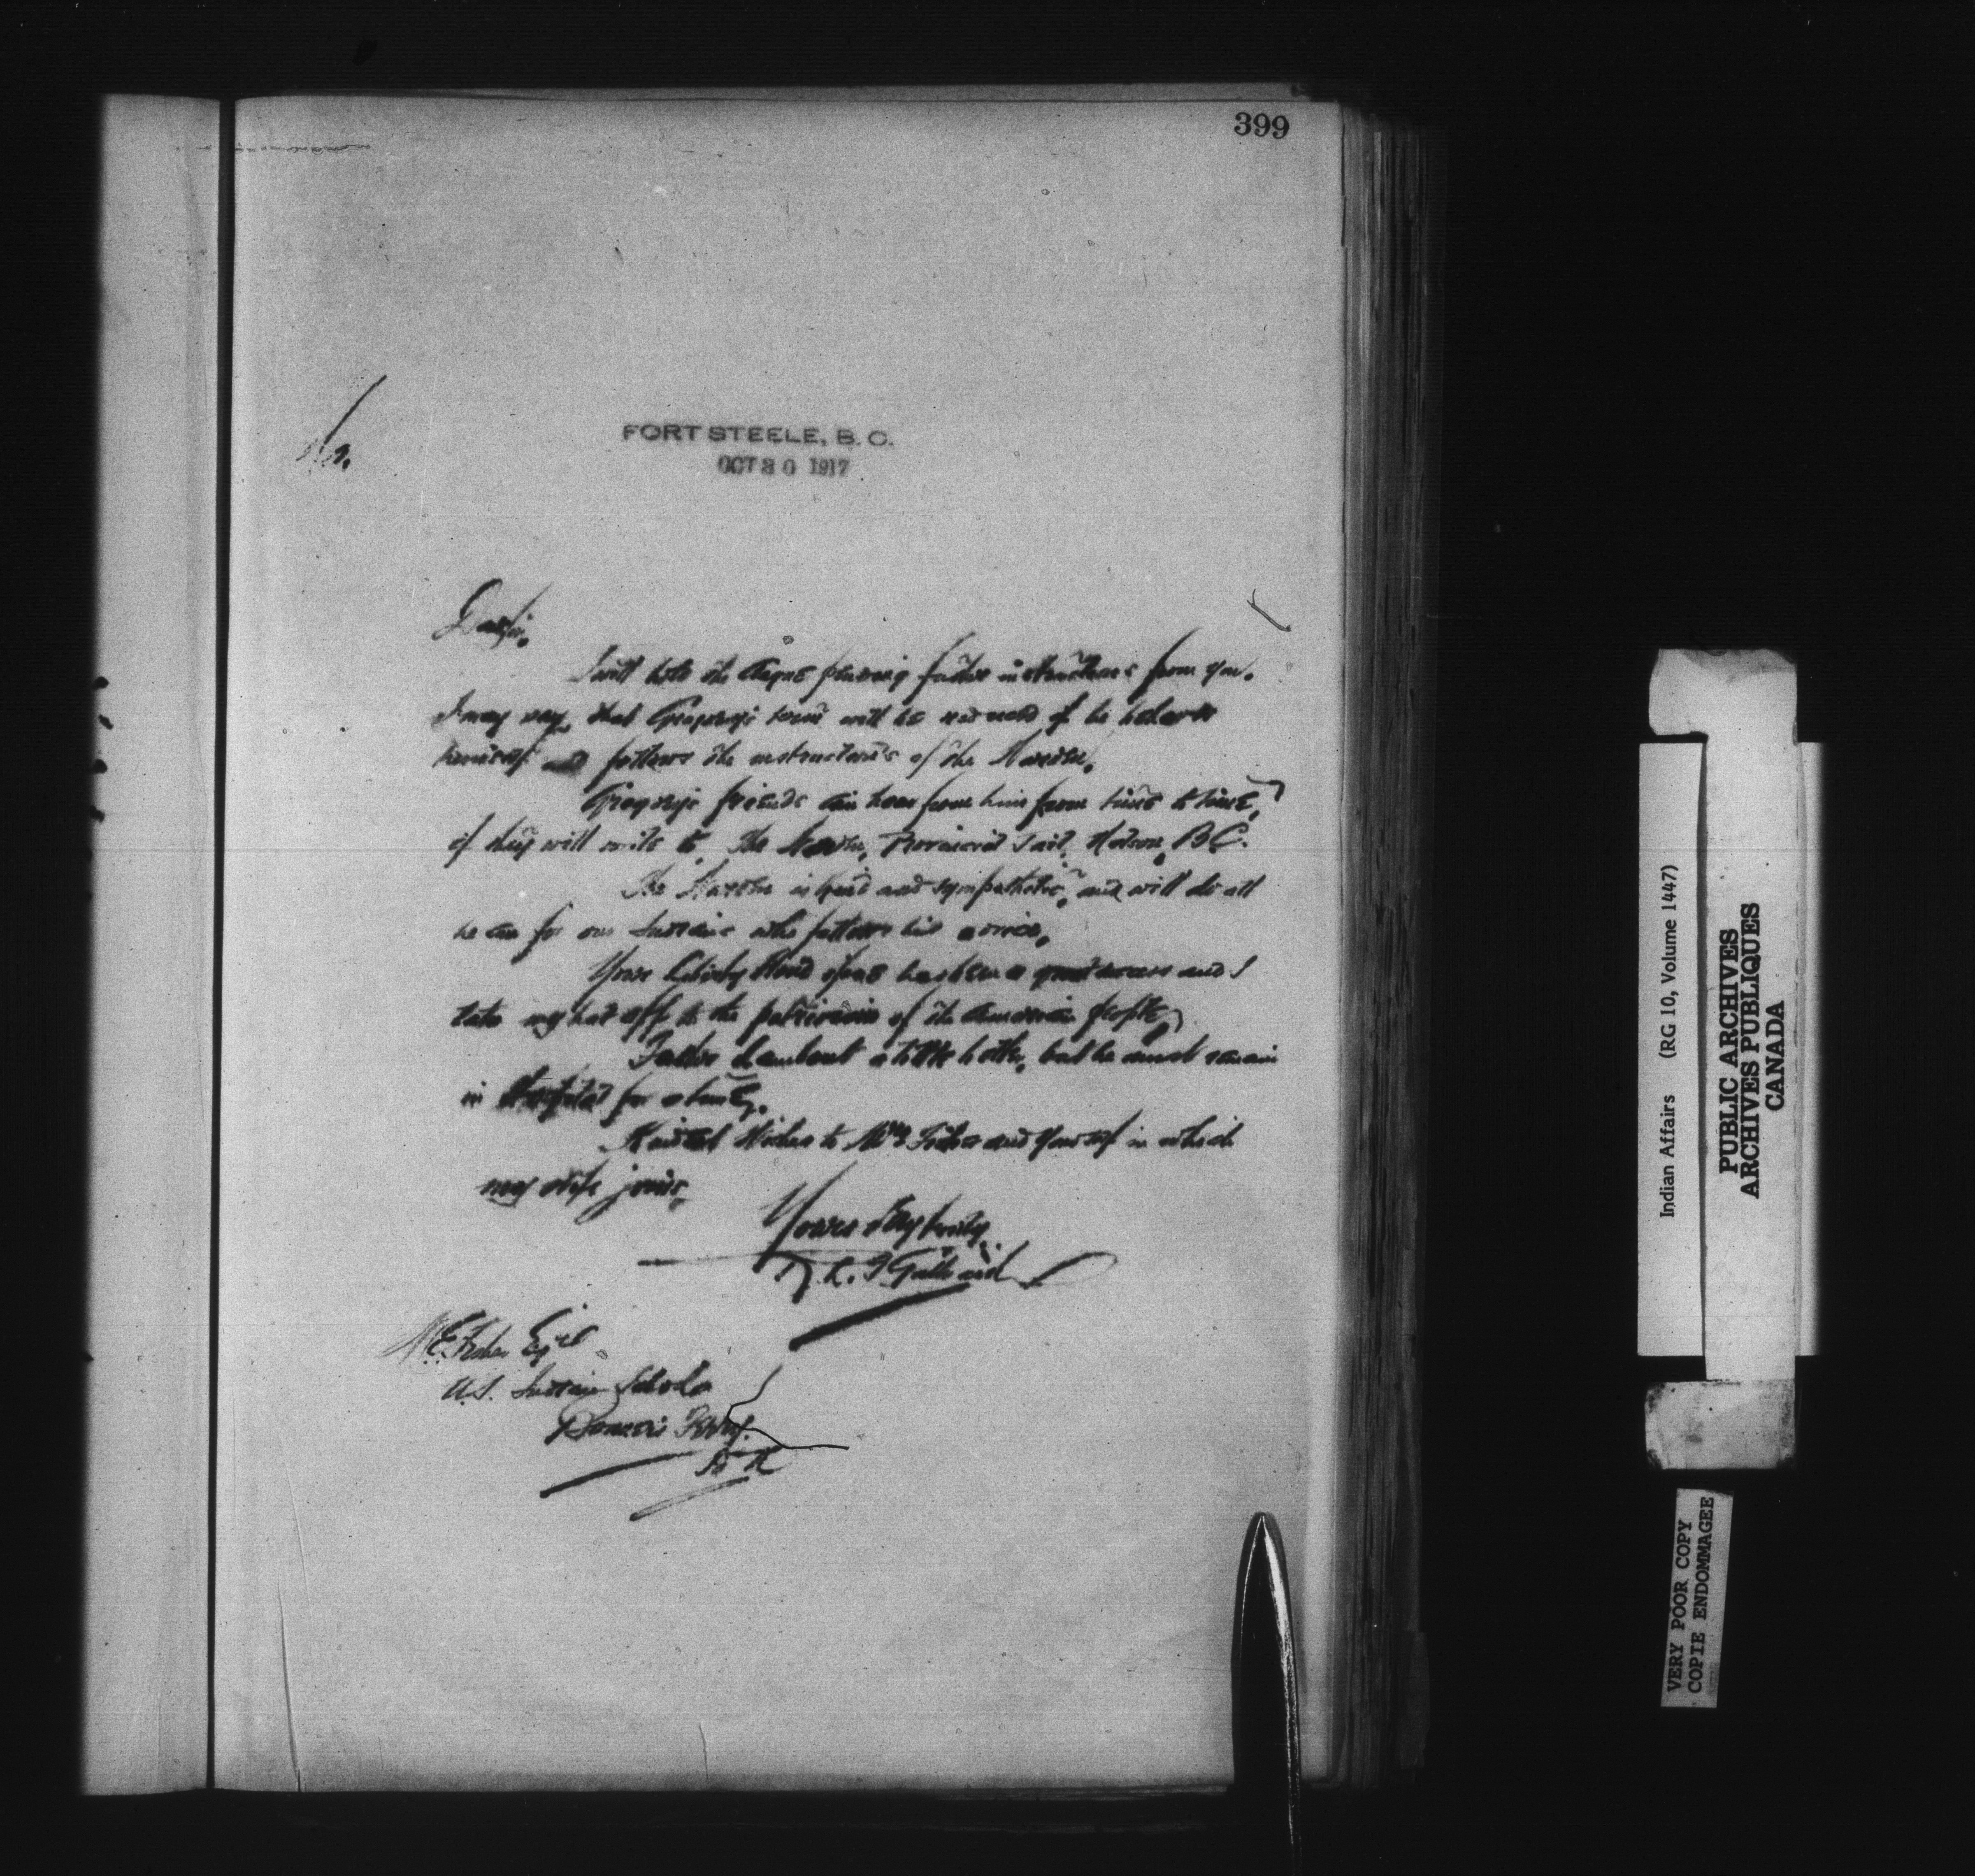 399
No.
FORT STEELE, B. C.
OCT 30 1917
Dear Sir,
I will hold the cheque pending further instructions from you.
I may say, that Gregory's term will be reduced if he behaves
himself and follows the instructions of the Warden.
Gregory's friends can hear from him from time to time,
if they will write to, The Warden, Provincial Jail, Nelson, B.C.
The Warden is kind and sympathetic, and will do all
he can for our Indians who follows his advice.
Your Liberty Bond has been a great success and I
take my hat off to the patriotism of the American people,
Father Lambert a little better, but he must remain
in Hospital for a time,
Kindest Wishes to Mrs Fisher and yourself in which
my wife joins,
Yours Very truly,
R. L. T Galbraith
Fisher Esqre
U.S. Indian School
Bonners Ferry
Indian Affairs (RG 10, Volume 1447)
PUBLIC ARCHIVES
ARCHIVES PUBLIQUES
CANADA
VERY POOR COPY
COPIE ENDOMMAGEE